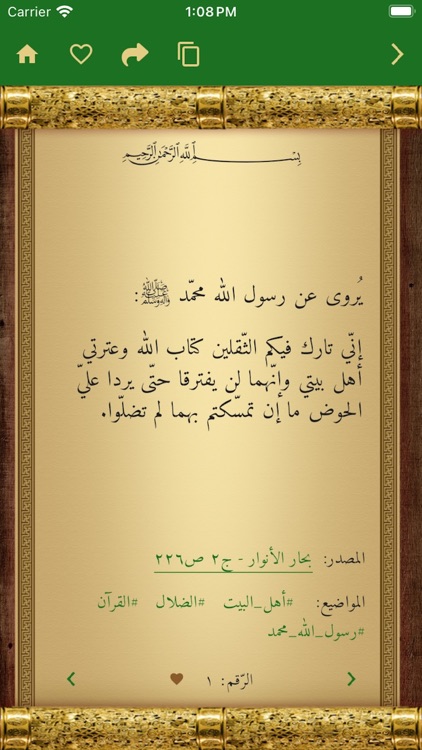 Carrier 1:08 PM
بسم الله الرحمن الرحيم
يُروى عن رسول الله محمّد ﷺ:
إنّي تارك فيكم الثّقلين كتاب الله وعترتي
أهل بيتي وإنّهما لن يفترقا حتّى يردا عليّ
الحوض ما إن تمسّكتم بهما لم تضلّوا.
المصدر: بحار الأنوار - ج٢ ص٢٢٦
المواضيع: #أهل_البيت #الضلال #القرآن
#رسول_الله_محمد
الرّقم: ١